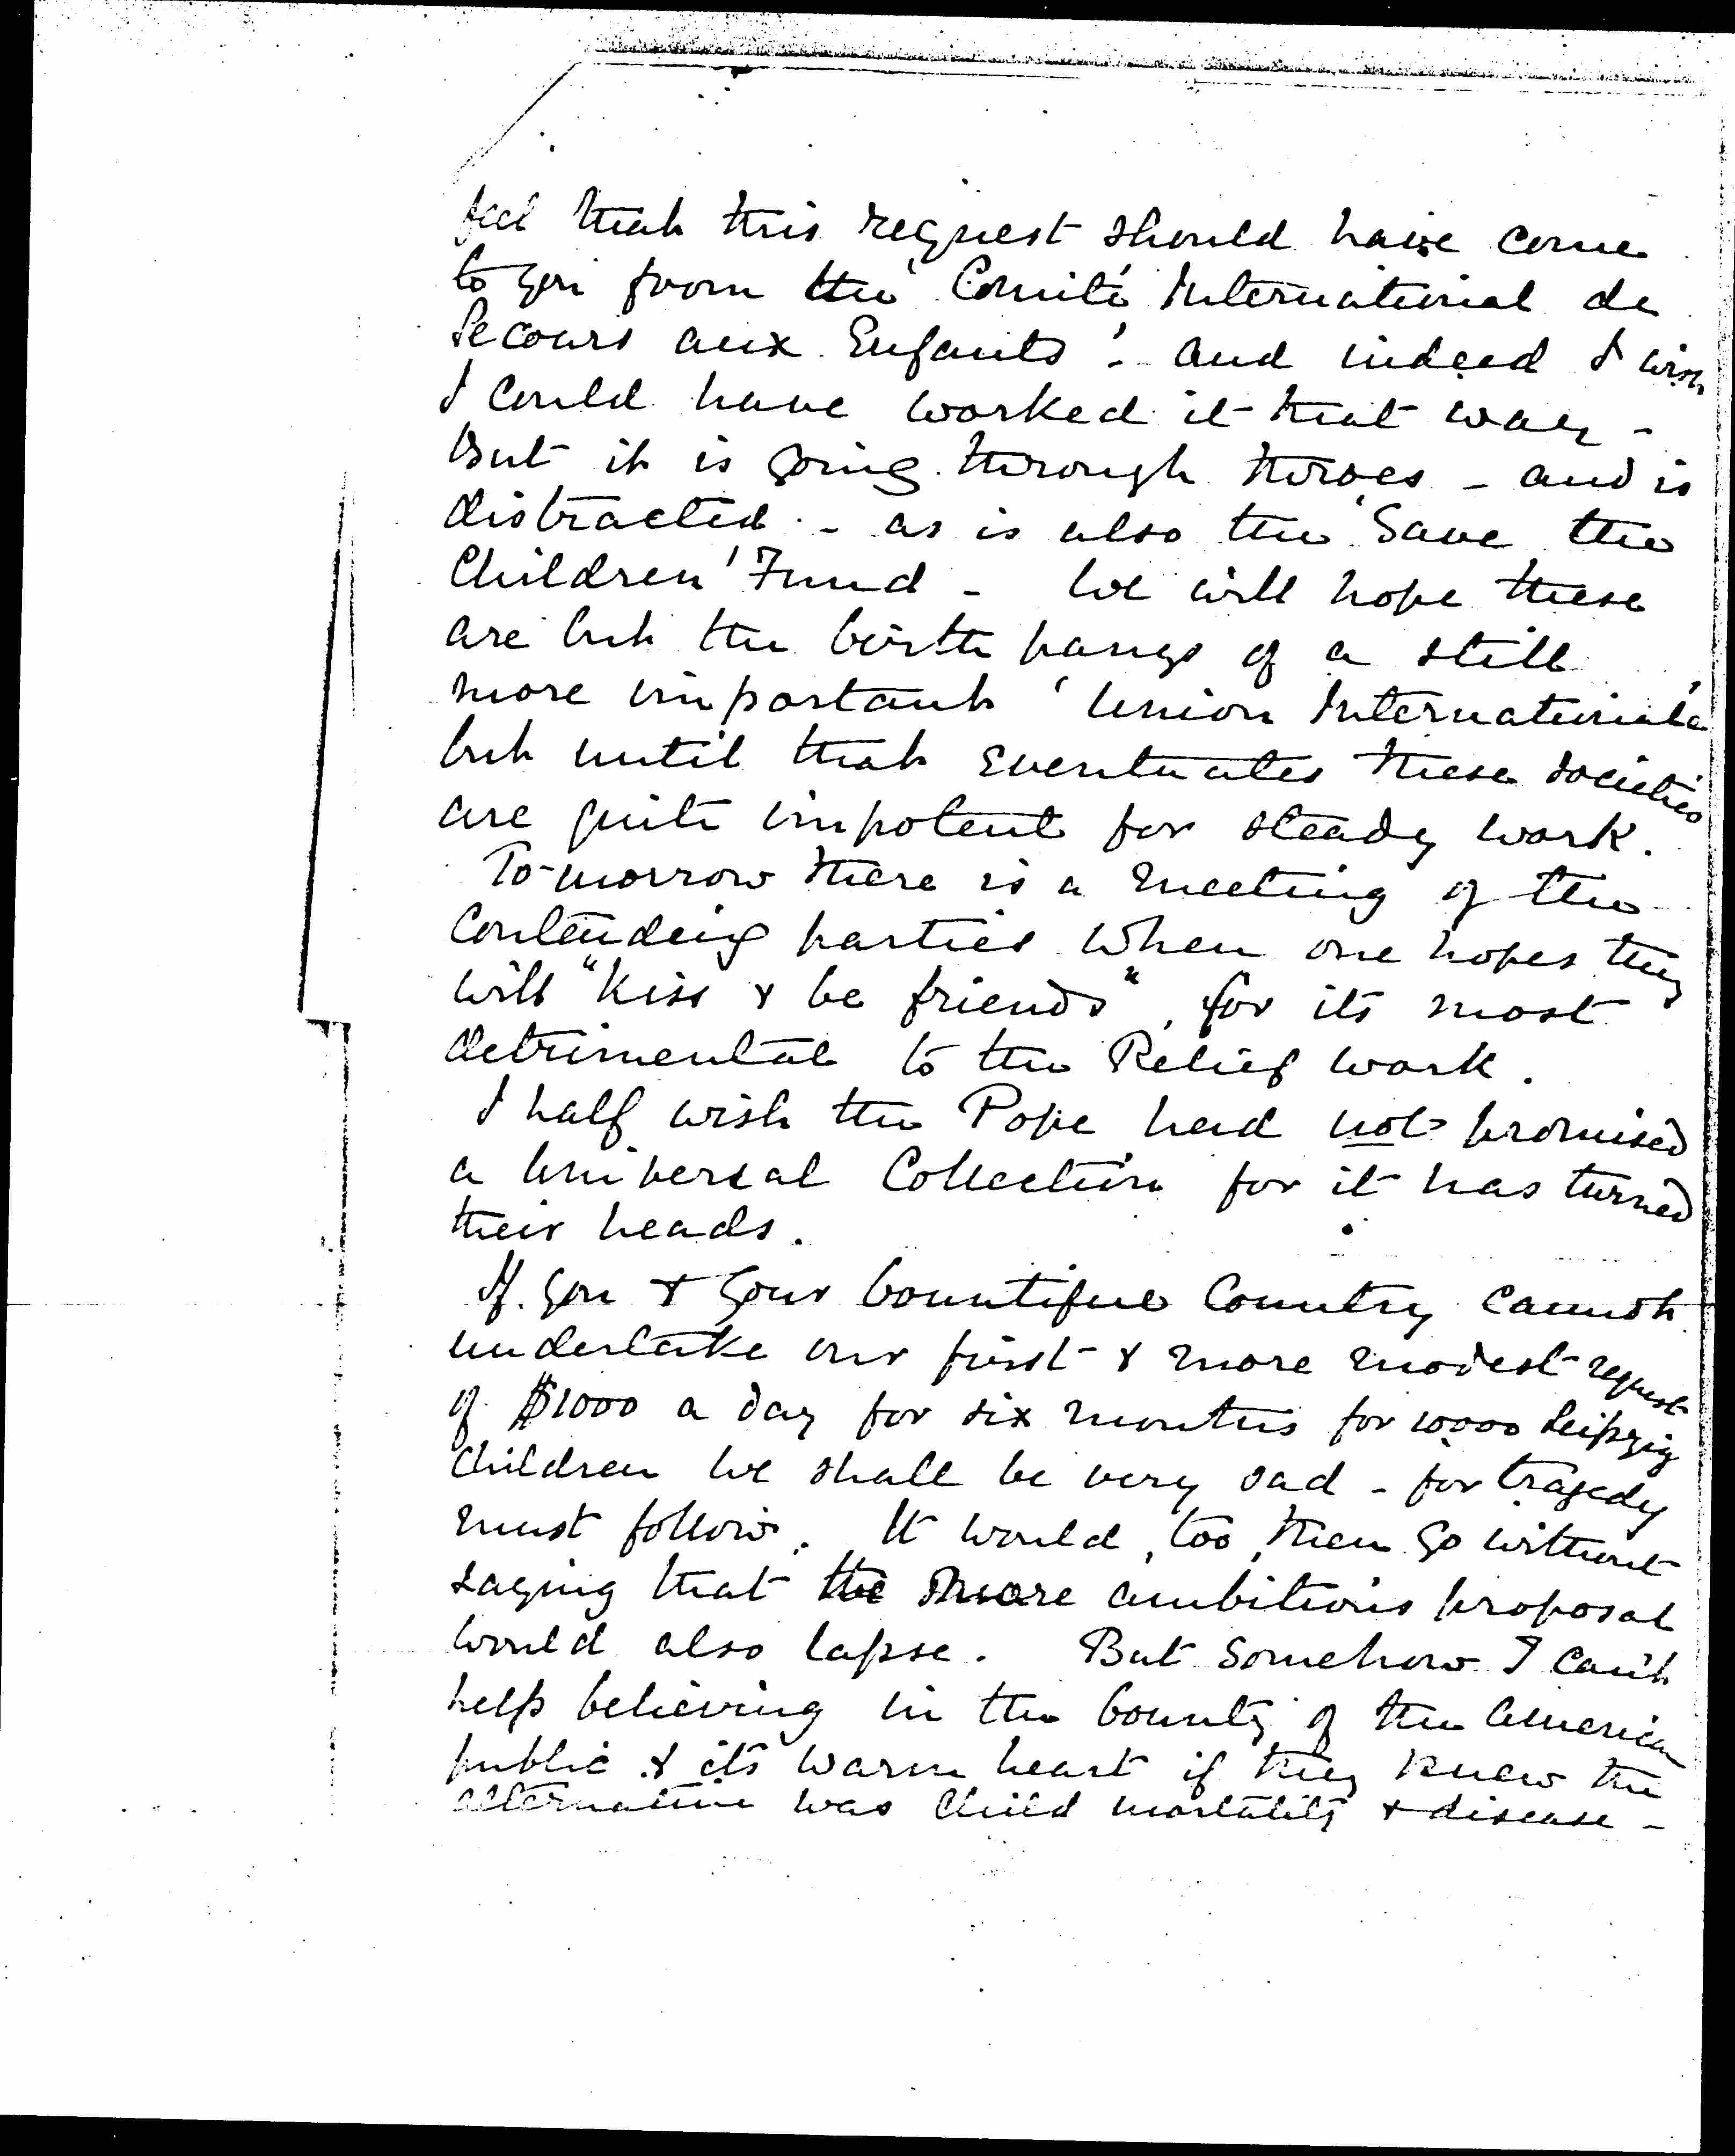 feel that this request should have come
to you from the 'Comité International de
Secours aux Enfants'. and indeed I wish
I could have worked it that way -
But it is going through throes - and is
distracted - as is also the 'Save the
Children' Fund - We will hope these
are but the birth pangs of a still
more important 'Union Internationale'
but until that eventuates these societies
are quite impotent for steady work.
To-morrow there is a meeting of the
contending parties when one hopes they
will "Kiss & be friends", for its most
detrimental to the Relief work.
I half wish the Pope had not promised
a Universal Collection for it has turned
their heads.
If you & your bountiful Country cannot
undertake our first & more modest request
of $1000 a day for six months for 10000 Leipzig
children we shall be very sad - for tragedy
must follow. It would, too, then go without
saying that the more ambitious proposal
would also lapse. But somehow I can't
help believing in the bounty of the American
public & its warm heart if they knew the
alternative was Child mortality & disease -